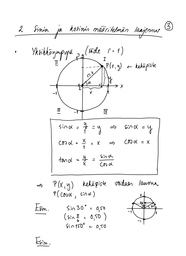 2 Sinin ja kosinin määritelmän laajennus ③
• Yksikköympyrä (säde r = 1)
II I
P(x,y) on kehäpiste
III IV
sin α = y/1 = y ⇒ sin α = y
cos α = x/1 = x ⇒ cos α = x
tan α = y/x = sin α / cos α
⇒ P(x,y) kehäpiste voidaan lausua
P(cos α, sin α)
Esim. sin 30° = 0,50
(sin π/6 = 0,50)
sin 150° = 0,50
Esim.